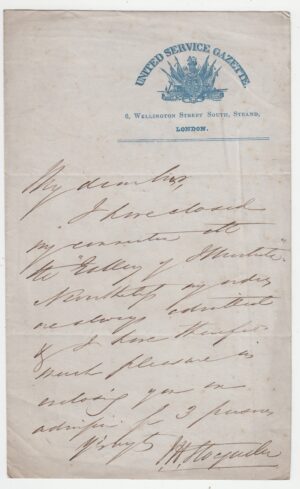 UNITED SERVICE GAZETTE.
6, WELLINGTON STREET SOUTH, STRAND,
LONDON.
My dear
I have closed
my connection with
the "Gallery of Illustration"
Nevertheless my orders
are always admitted
& I have therefore
much pleasure in
enclosing you an
admission for 3 persons
J H Stocqueler